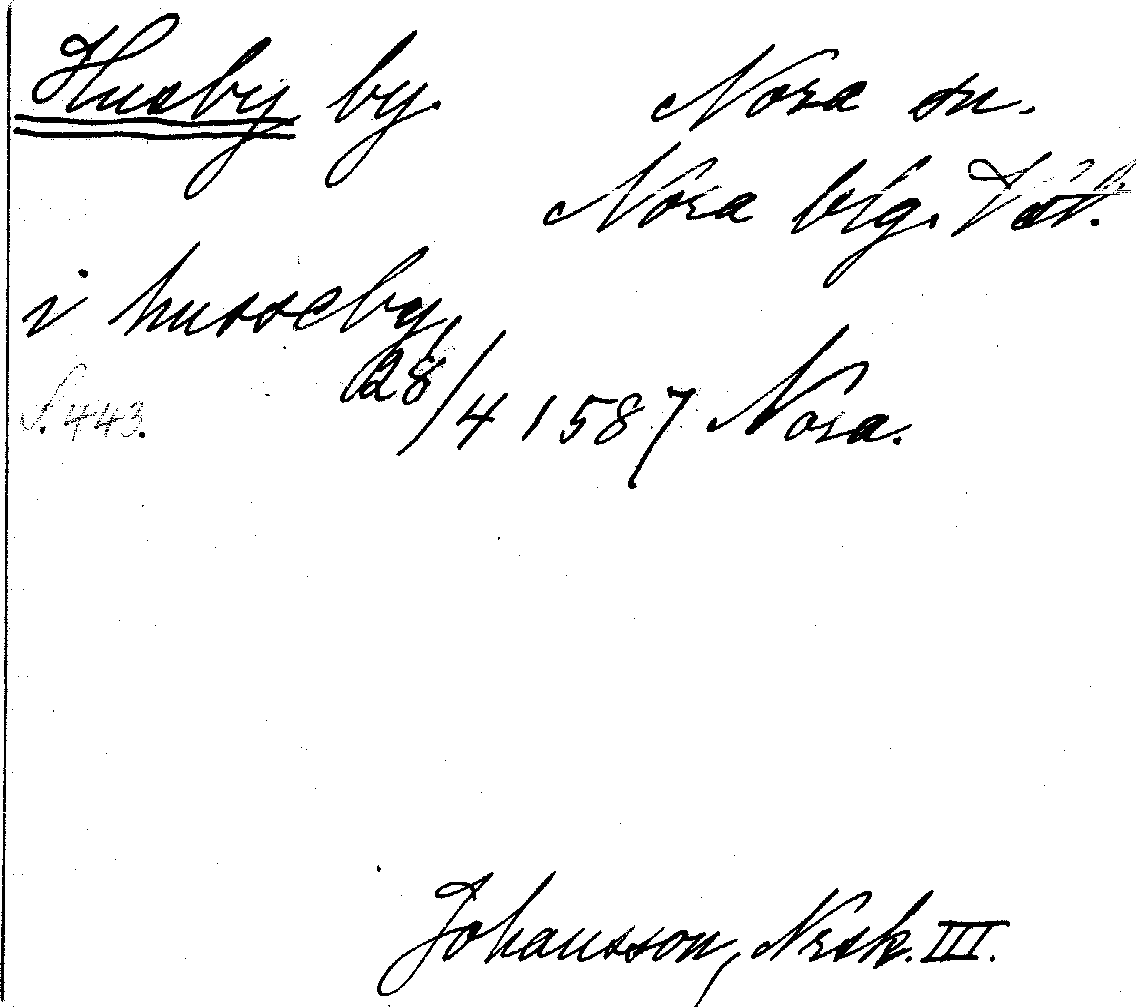 Husby by. Nora sn.
Nora blg. Väst.
i husseby,
S. 443. 28/4 1587 Nora.
Johansson, Nrsk. III.